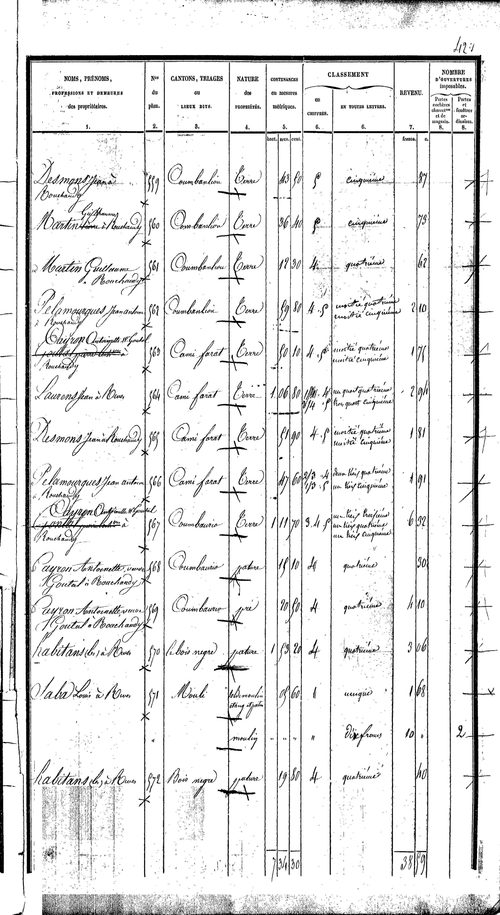 424
NOMS, PRÉNOMS,
PROFESSIONS ET DEMEURES
des propriétaires.
1.
Nos
du
plan.
2.
CANTONS, TRIAGES
OU
LIEUX DITS.
3.
NATURE
des
PROPRIÉTÉS.
4.
CONTENANCES
en mesures
métriques.
5.
CLASSEMENT
en
CHIFFRES.
6.
EN TOUTES LETTRES.
6.
REVENU.
7.
NOMBRE
D'OUVERTURES
imposables.
Portes
cochères
et de
magasin.
8.
Portes
et
fenêtres
or-
dinaires.
8.
hect. ares. cent.
francs. c.
Desmons Jean à 559 Coumbaulion Terre 43 50 5 cinquième 87
Rouchandy
Guillaume
Martin à Rouchandy 560 Coumbaulion Terre 36 40 5 cinquième 73
Martin Guillaume 561 Coumbaulion Terre 18 30 4 quatrième 62
à Rouchandy
Pelamourgues Jean antoine 562 Coumbaulion Terre 59 80 4 . 5 moitié quatrième 2 10
à Rouchandy moitié cinquième
Cayron Antoinette Ve Goutal 563 Cami farat Terre 50 10 4 . 5 moitié quatrième 1 75
Rouchandy moitié cinquième
Laurens Jean à Rives 564 Cami farat Terre 1 06 80 1/4 . 4 un quart quatrième 2 94
3/4 . 5 trois quart cinquième
Desmons Jean à Rouchandy 565 Cami farat Terre 51 90 4 . 5 moitié quatrième 1 81
moitié cinquième
Pelamourgues Jean antoine 566 Cami farat Terre 47 60 2/3 . 4 deux tiers quatrième 1 91
à Rouchandy 1/3 . 5 un tiers cinquième
Cayron Antoinette Ve Goutal
à 567 Coumbaurio Terre 1 11 70 3 . 4 . 5 un tiers troisième 6 32
Rouchandy un tiers quatrième
un tiers cinquième
Cayron Antoinette, veuve 568 Coumbaurio pature 15 10 4 quatrième 30
Goutal à Rouchandy
Cayron Antoinette, veuve 569 Coumbaurio pré 20 50 4 quatrième 4 10
Goutal à Rouchandy
habitans (les) à Rives 570 le bois negre pature 1 53 20 4 quatrième 3 06
Saba Louis à Rives 571 Mouli 05 60 unique 1 68
moulin dix francs 10 2
habitans (les) à Rives 572 Bois negre pature 19 80 4 quatrième 40
7 34 30 38 59